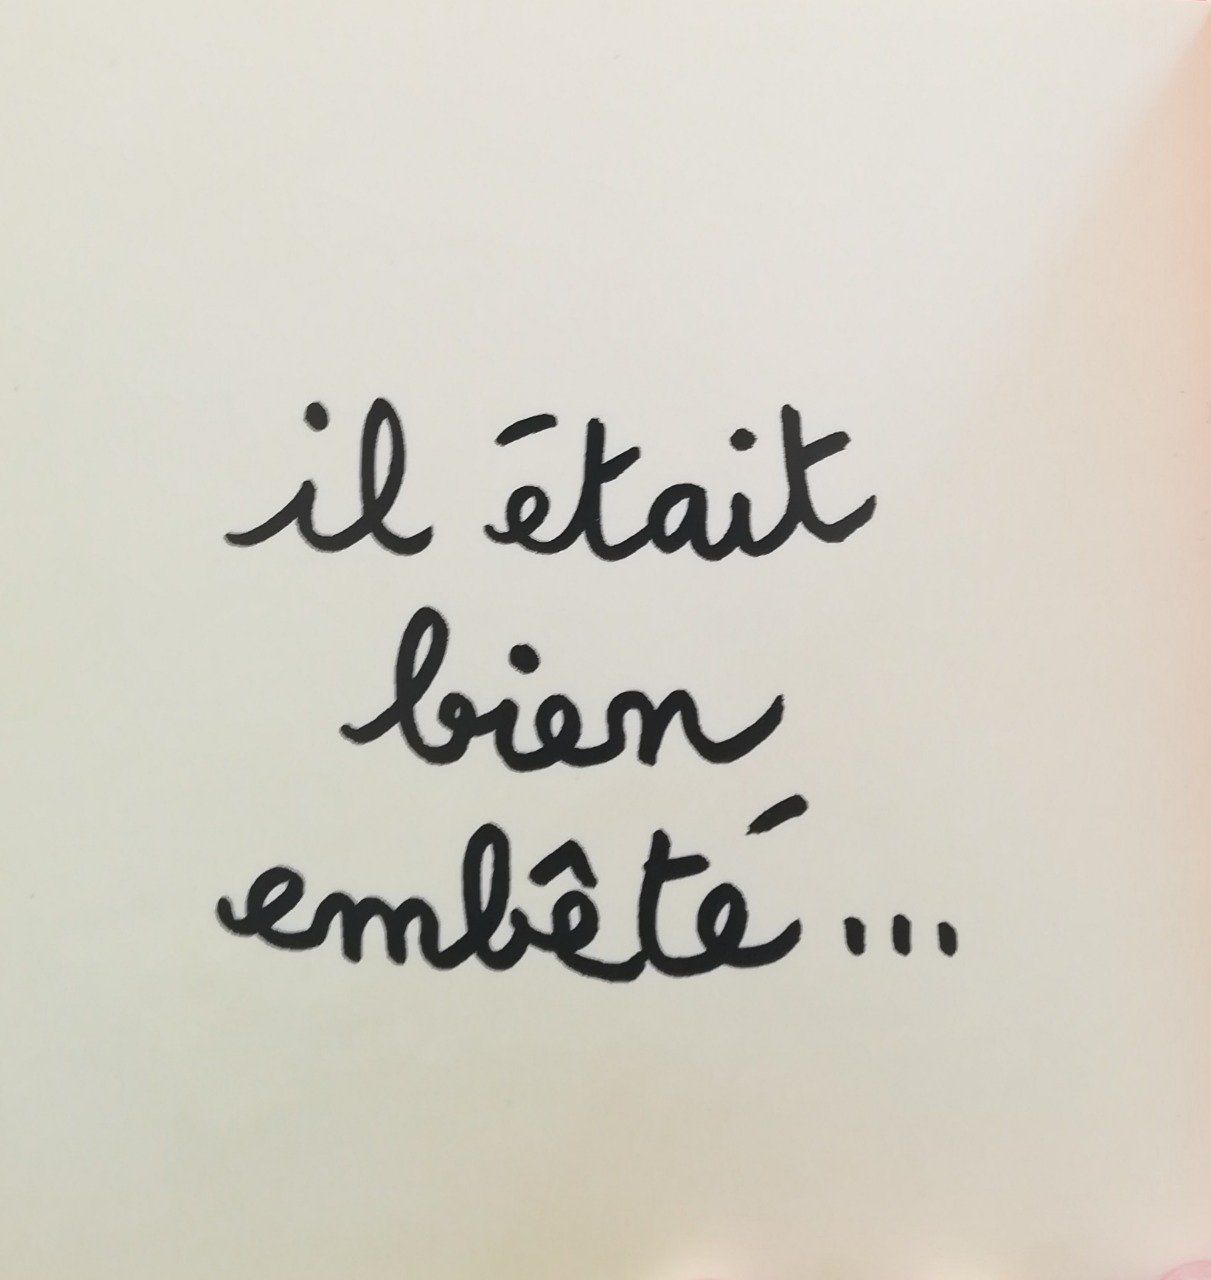 il était
bien
embêté...